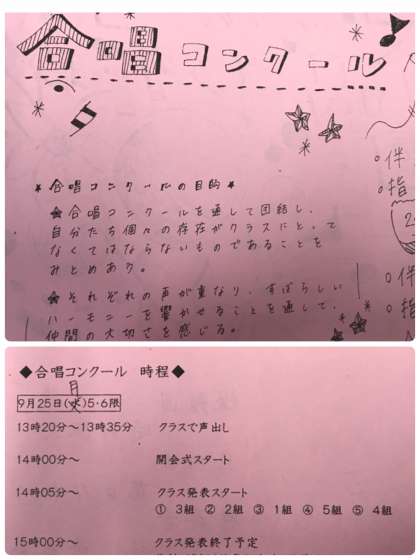 合唱コンクール
★合唱コンクールの目的★
★合唱コンクールを通して団結し、
自分たち個々の存在がクラスにとって
なくてはならないものであることを
みとめあう。
★それぞれの声が重なり、すばらしい
ハーモニーを響かせることを通して、
仲間の大切さを感じる。
○伴
○指
2
○伴
○指
◆合唱コンクール 時程◆
月
9月25日(火)5・6限
13時20分～13時35分 クラスで声出し
14時00分～ 開会式スタート
14時05分～ クラス発表スタート
① 3組 ② 2組 ③ 1組 ④ 5組 ⑤ 4組
15時00分～ クラス発表終了予定